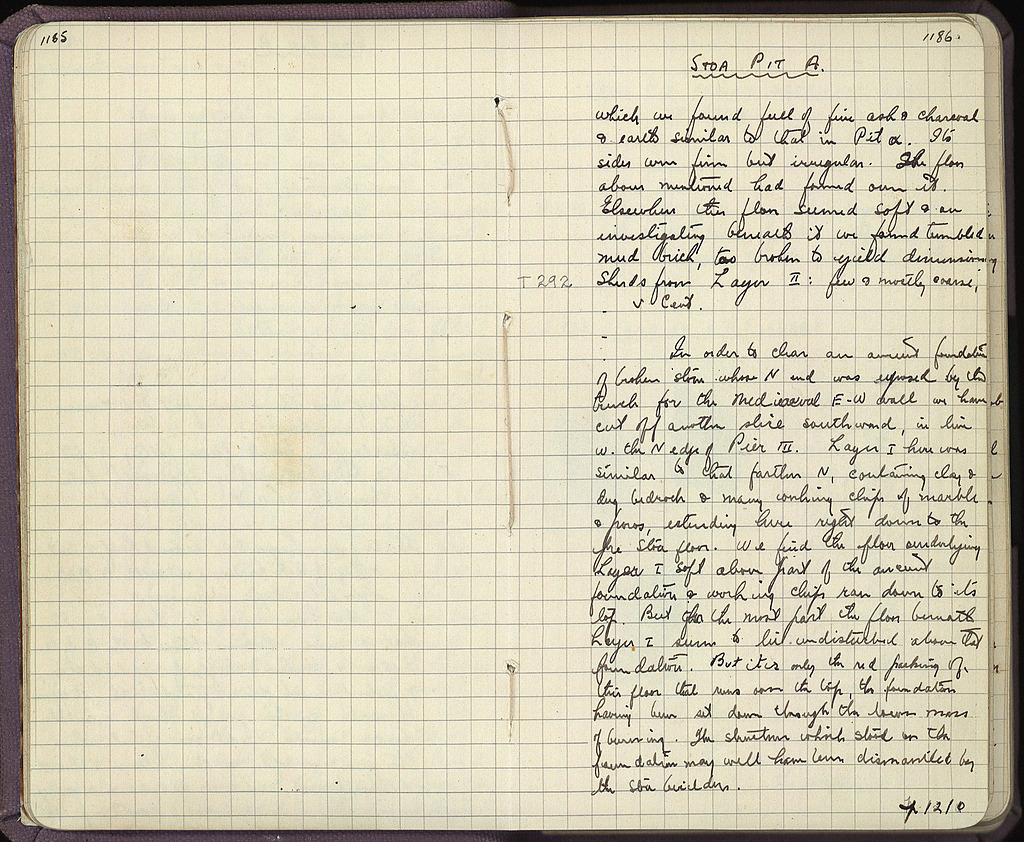 1185
1186.
STOA PIT A.
which we found full of fine ash & charcoal
& earth similar to that in Pit α. Its
sides were firm but irregular. The floor
above mentioned had formed over it.
Elsewhere this floor seemed soft & on
investigating beneath it we found tumbled
mud brick, too broken to yield dimensions
T 292
Sherds from Layer II: few & mostly coarse,
V Cent.
In order to clear an ancient foundation
of broken stone whose N end was exposed by the
trench for the Mediaeval E-W wall we have
cut off another slice southward, in line
w. the N edge of Pier III. Layer I here was
similar to that farther N, containing clay &
dug bedrock & many working chips of marble
& poros, extending here right down to the
pre Stoa floor. We find the floor underlying
Layer I soft above part of the ancient
foundation & working chips ran down to its
top. But for the most part the floor beneath
Layer I seems to lie undisturbed above the
foundation. But it is only the red packing of
this floor that runs over the top, the foundation
having been set down through the lower mass
of burning. The structure which stood on the
foundation may well have been dismantled by
the Stoa builders.
p. 1210